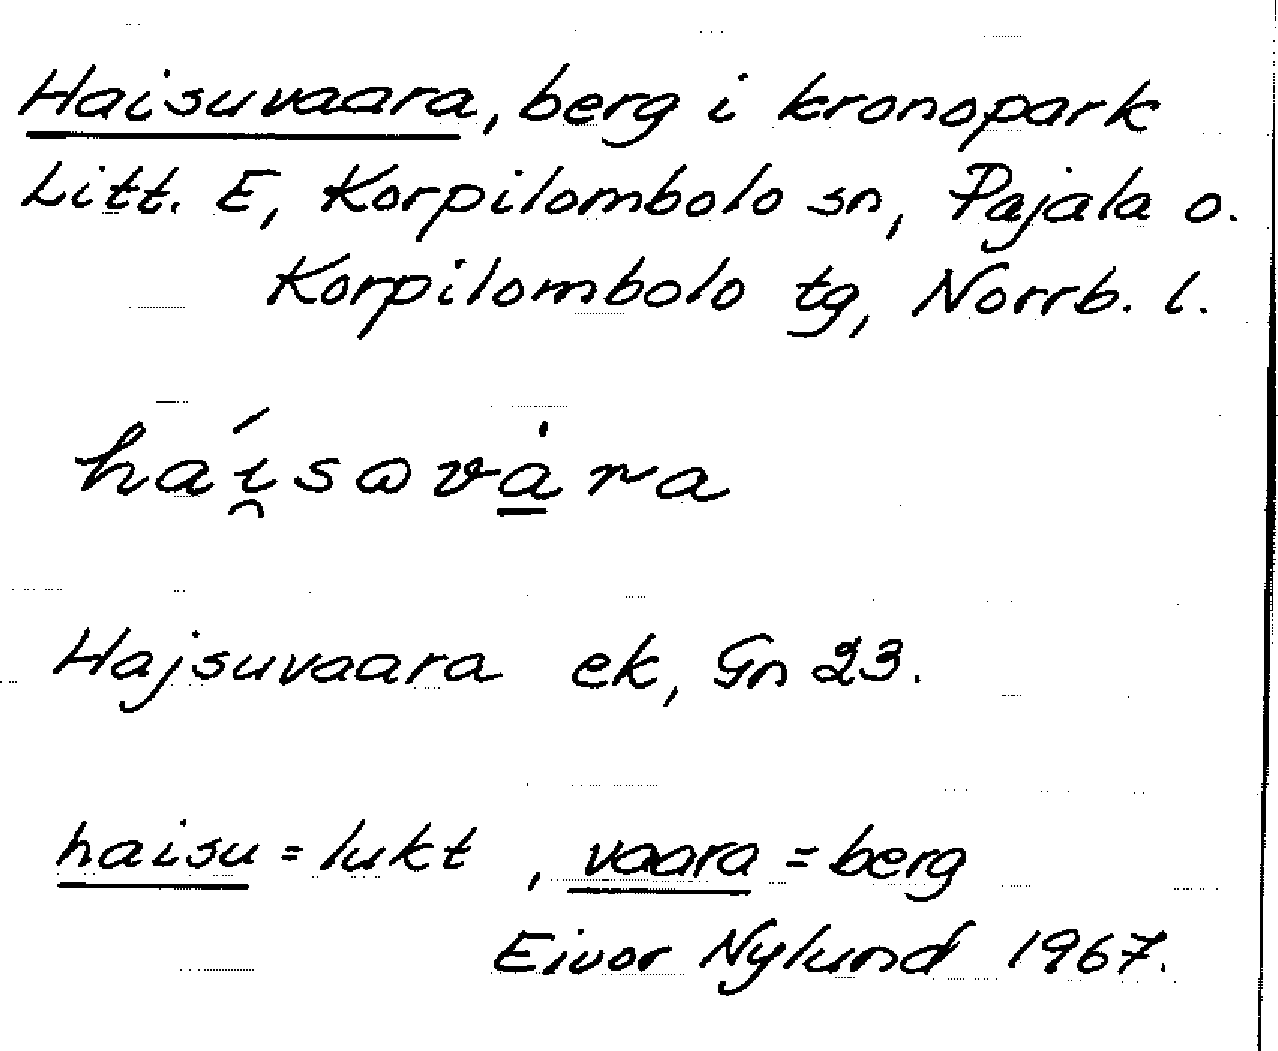 Haisuvaara, berg i kronopark
Litt. E, Korpilombolo sn, Pajala o.
Korpilombolo tg, Norrb. l.
hái̯sɷvȧ̱ra
Hajsuvaara ek, Gn 23.
haisu = lukt , vaara = berg
Eivor Nylund 1967.